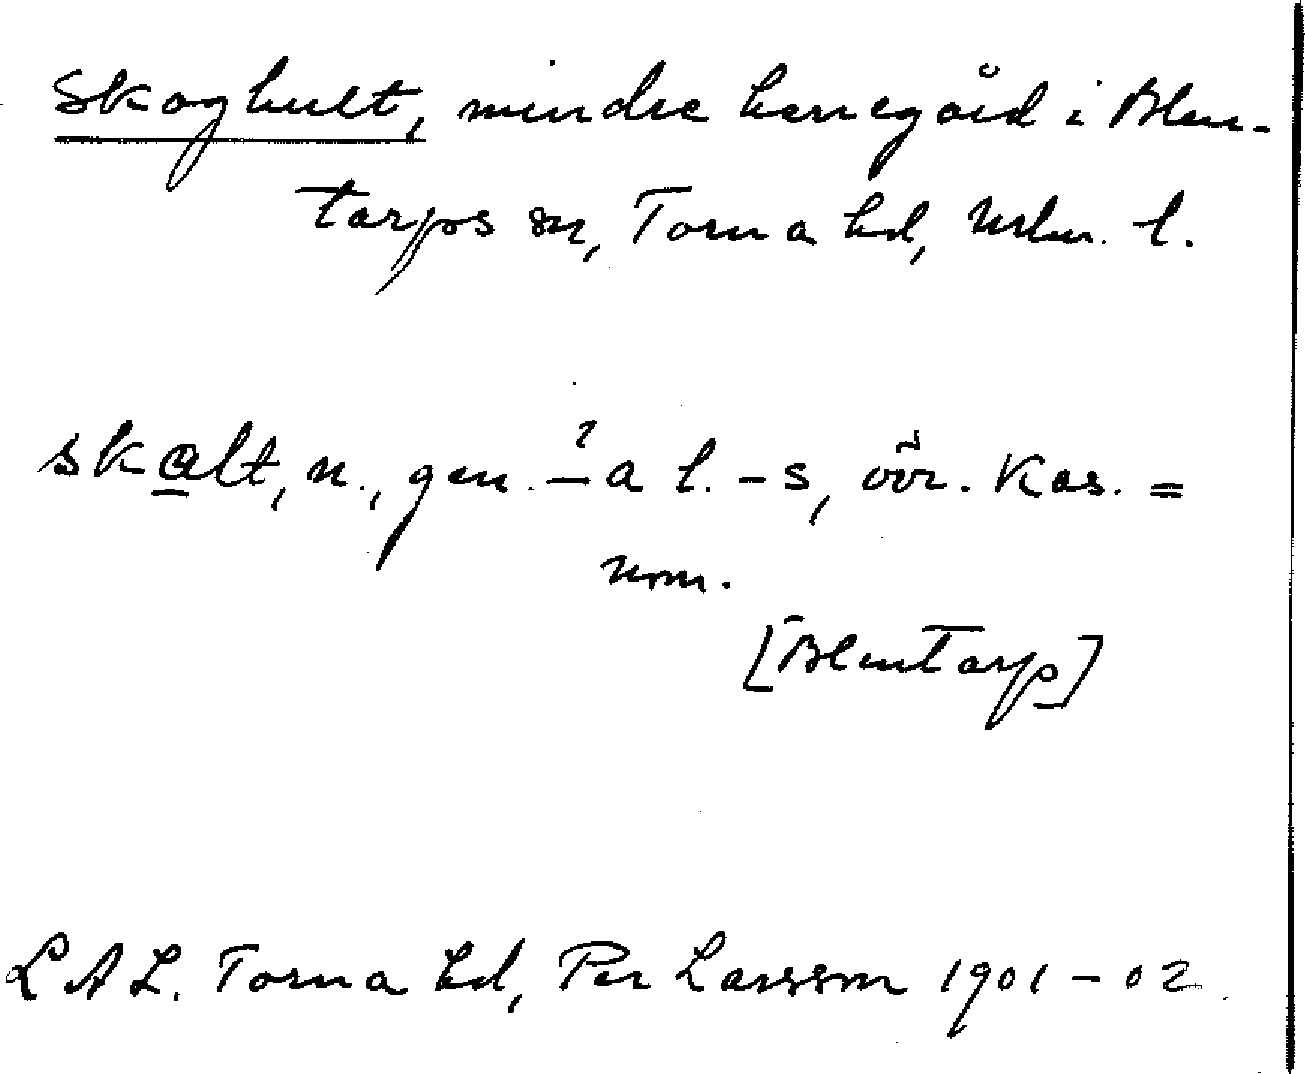 Skoghult, mindre herregård i Blen-
tarps sn, Torna hd, Mlm. l.
skalt, n., gen. -a l. -s, övr. Kas. =
nom.
[Blentarp]
LAL. Torna hd, Per Larsson 1901-02